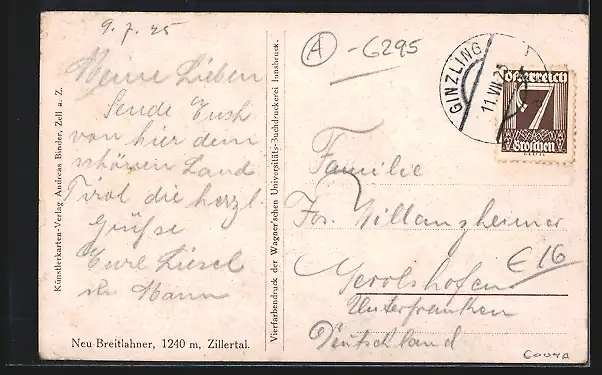 9.7.25
Meine Lieben
Sende Euch
von hier dem
schönen Land
Tirol die herzl.
Grüße
Eure Liesel
Mann
Künstlerkarten-Verlag Andreas Binder, Zell a. Z.
Neu-Breitlahner, 1240 m, Zillertal.
Vierfarbendruck der Wagner'schen Universitäts-Buchdruckerei Innsbruck.
A -6295
GINZLING
11.VII.25
Österreich
7
Groschen
Familie
Jos. Willanzheimer
Gerolzhofen
€16
Unterfranken
Deutschland